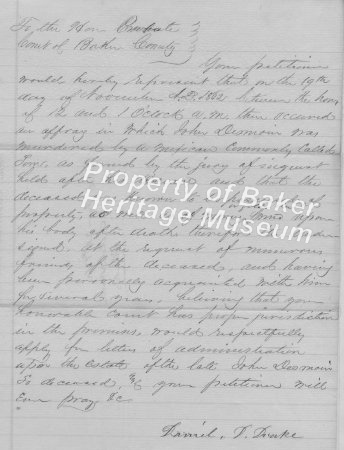 To the Hon Probate
Court of Baker County
Your petitioner
would hereby represent that on the 19th
day of November A.D. 1862 between the hours
of 12 and 1 O'clock a.m. there occured
an affray in which John Desmoin was
murdered by a Mexican Commonly Called
as found by the jury of inquest
held after his death and that the
deceased
property, as was found upon
his body after death therefore the under
signed at the request of numerous
friends of the deceased, and having
been personally acquainted with him
for several years, believing that your
honorable Court has proper jurisdiction
in the premises, would respectfully
apply for letters of administration
upon the Estate of the late John Desmoin
so deceased, & your petitioner will
Ever pray &c.
Daniel, D. Drake
Property of Baker
Heritage Museum